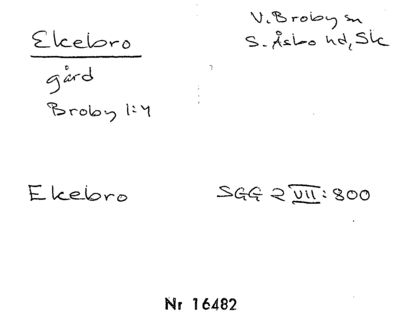 Ekebro
V. Broby sn
S. Åsbo hd, Sk
gård
Broby 1:4
Ekebro
SGG 2 VII: 800
Nr 16482